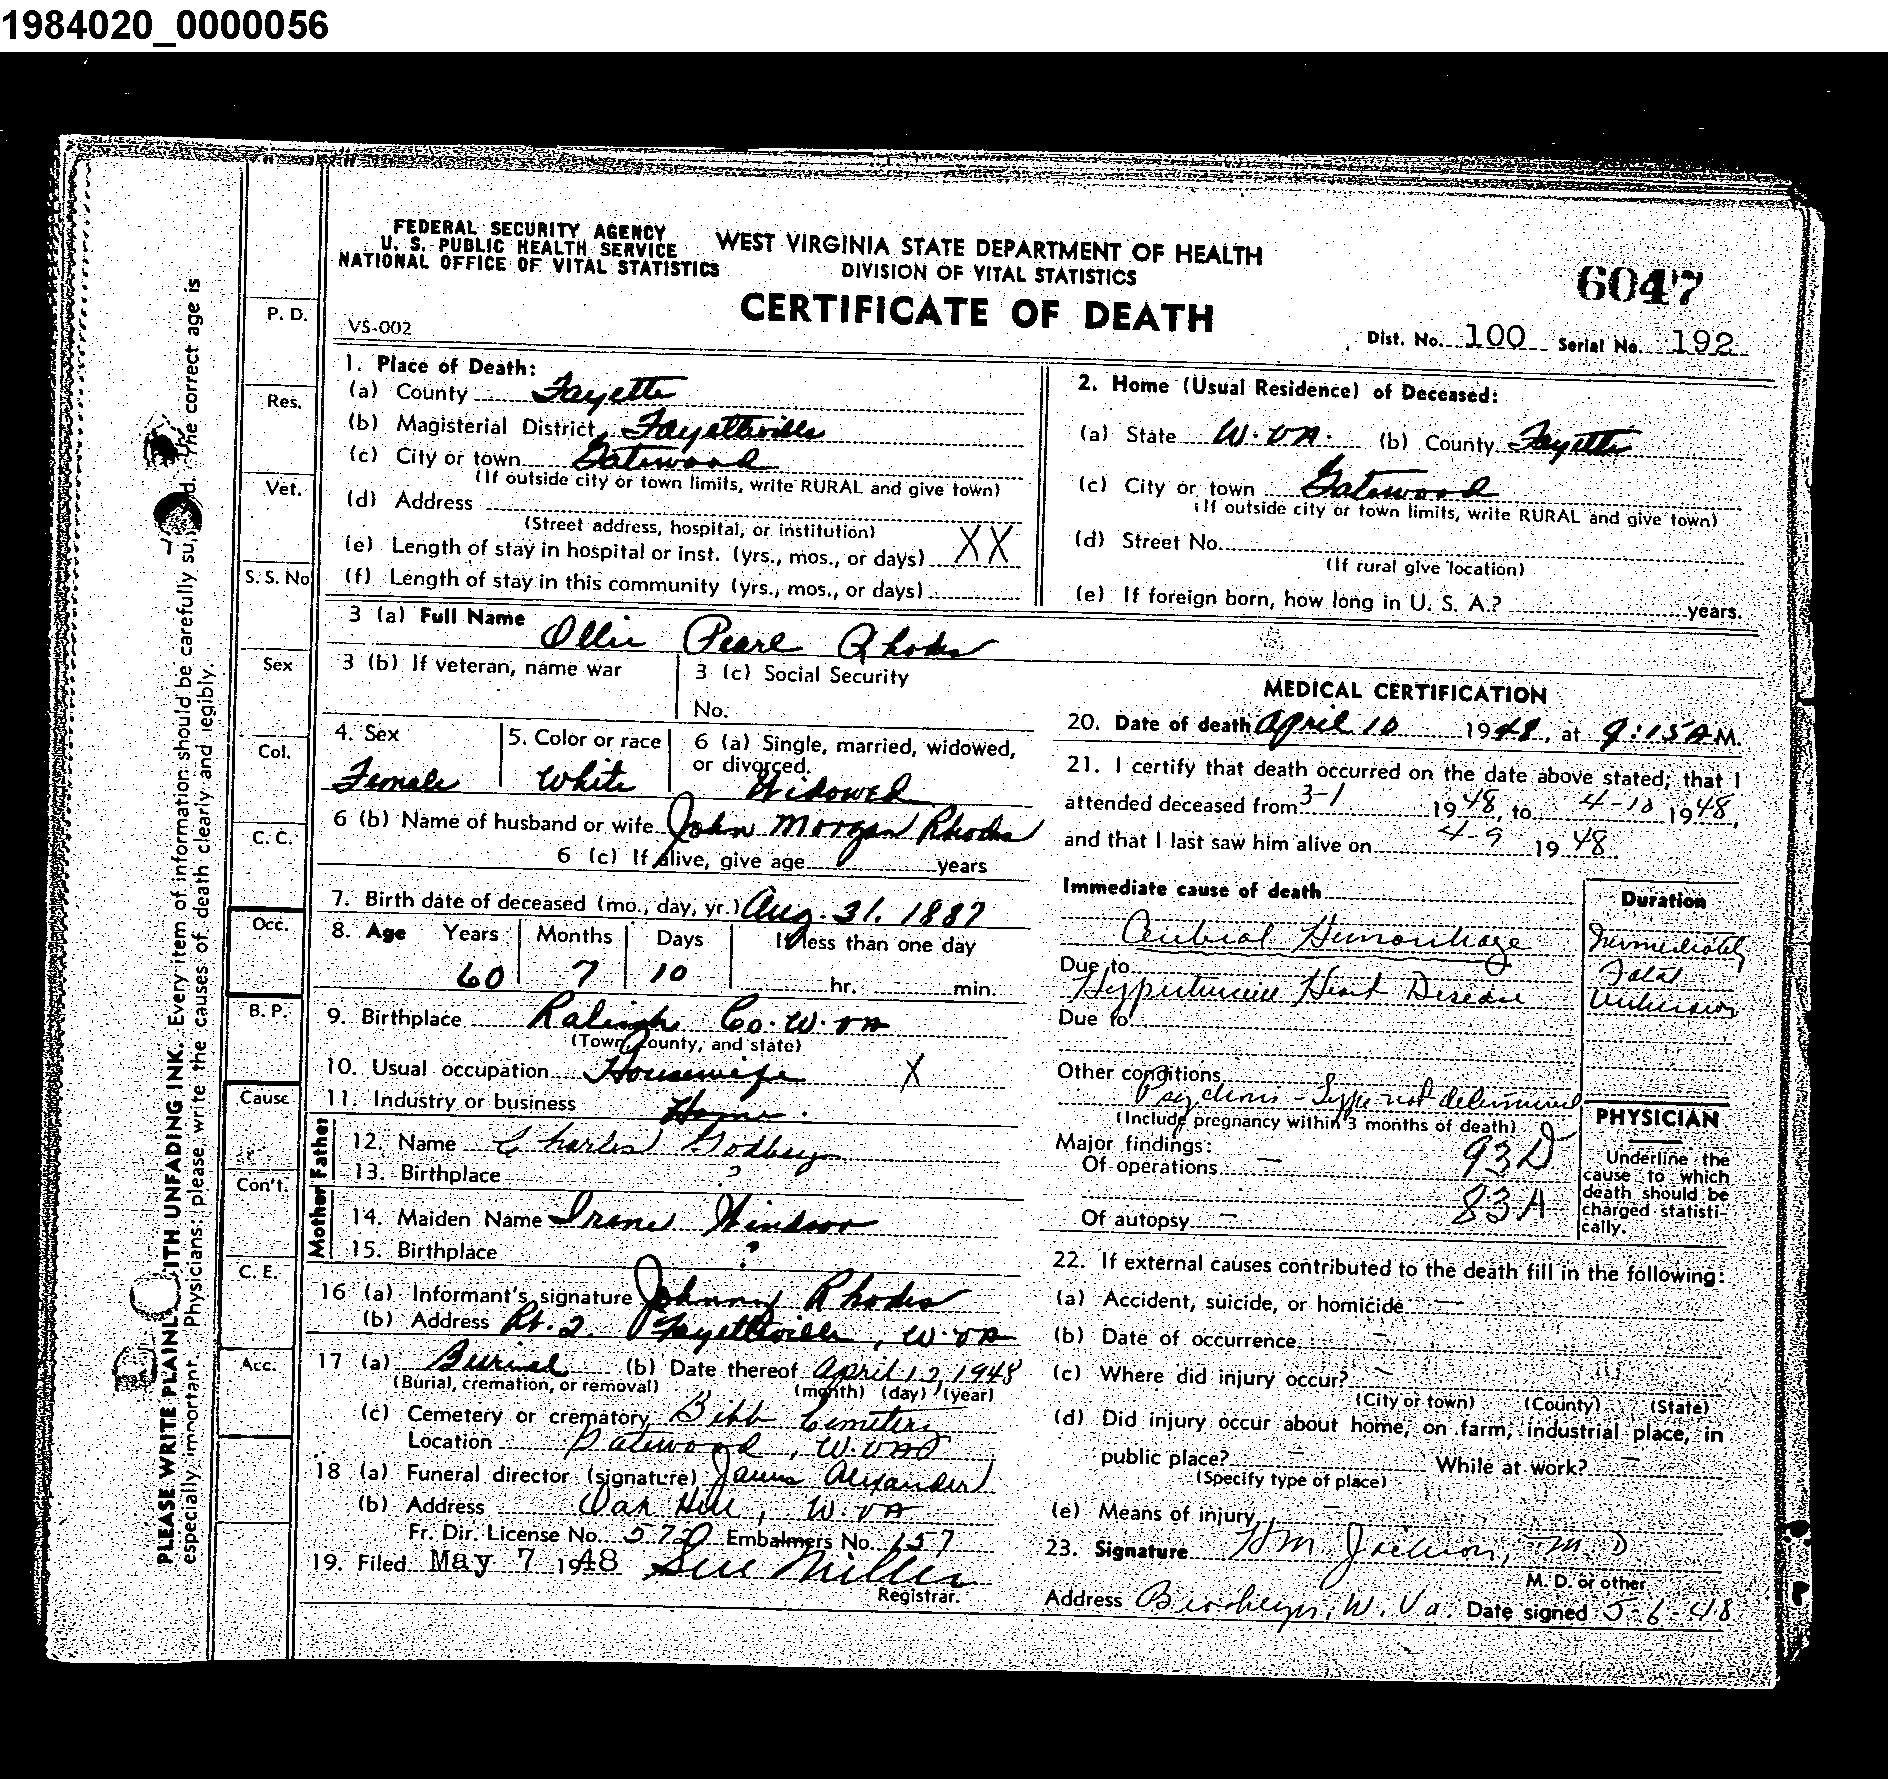 1984020_0000056
FEDERAL SECURITY AGENCY
U. S. PUBLIC HEALTH SERVICE
NATIONAL OFFICE OF VITAL STATISTICS
WEST VIRGINIA STATE DEPARTMENT OF HEALTH
DIVISION OF VITAL STATISTICS
CERTIFICATE OF DEATH
6047
VS-002
Dist. No. 100 Serial No. 192
1. Place of Death:
(a) County Fayette
(b) Magisterial District Fayetteville
(c) City or town Gatewood
(If outside city or town limits, write RURAL and give town)
(d) Address
(Street address, hospital, or institution)
(e) Length of stay in hospital or inst. (yrs., mos., or days) XX
(f) Length of stay in this community (yrs., mos., or days)
2. Home (Usual Residence) of Deceased:
(a) State W. VA. (b) County Fayette
(c) City or town Gatewood
(If outside city or town limits, write RURAL and give town)
(d) Street No.
(If rural give location)
(e) If foreign born, how long in U. S. A.? years.
3 (a) Full Name Ollie Pearl Rhodes
3 (b) If veteran, name war
3 (c) Social Security
No.
4. Sex Female
5. Color or race White
6 (a) Single, married, widowed,
or divorced. Widowed
6 (b) Name of husband or wife John Morgan Rhodes
6 (c) If alive, give age years
7. Birth date of deceased (mo., day, yr.) Aug. 31, 1887
8. Age Years Months Days If less than one day
60 7 10 hr. min.
9. Birthplace Raleigh Co. W. VA
(Town, county, and state)
10. Usual occupation Housewife X
11. Industry or business Home.
Father
12. Name Charles
13. Birthplace ?
Mother
14. Maiden Name Irene
15. Birthplace ?
16 (a) Informant's signature Johnny Rhodes
(b) Address Rt. 2. Fayetteville, W. VA
17 (a) Burial (b) Date thereof April 12, 1948
(Burial, cremation, or removal) (month) (day) (year)
(c) Cemetery or crematory Bibb Cemetery
Location Gatewood, W. VA
18 (a) Funeral director (signature) James Alexander
(b) Address Oak Hill, W. VA
Fr. Dir. License No. 572 Embalmers No. 657
19. Filed May 7 1948 Sue Miller
Registrar.
MEDICAL CERTIFICATION
20. Date of death April 10 1948, at 9:15 A M.
21. I certify that death occurred on the date above stated; that I
attended deceased from 3-1 1948, to 4-10 1948,
and that I last saw him alive on 4-9 1948
Immediate cause of death
Duration
Cerebral Hemorrhage Immediately
Due to Fatal
Hypertensive Heart Disease Unknown
Due to
Other conditions
Psychosis - Type not determined
(Include pregnancy within 3 months of death)
Major findings:
Of operations — 93D
Of autopsy — 83A
PHYSICIAN
Underline the
cause to which
death should be
charged statisti-
cally.
22. If external causes contributed to the death fill in the following:
(a) Accident, suicide, or homicide —
(b) Date of occurrence —
(c) Where did injury occur? —
(City or town) (County) (State)
(d) Did injury occur about home, on farm, industrial place, in
public place? — While at work? —
(Specify type of place)
(e) Means of injury —
23. Signature M. D
M. D. or other
Address W. Va. Date signed 5-6-48
P. D.
Res.
Vet.
S. S. No
Sex
Col.
C. C.
Occ.
B. P.
Cause
Con't.
C. E.
Acc.
PLEASE WRITE PLAINLY WITH UNFADING INK. Every item of information should be carefully The correct age is
especially important. Physicians: please write the causes of death clearly and legibly.